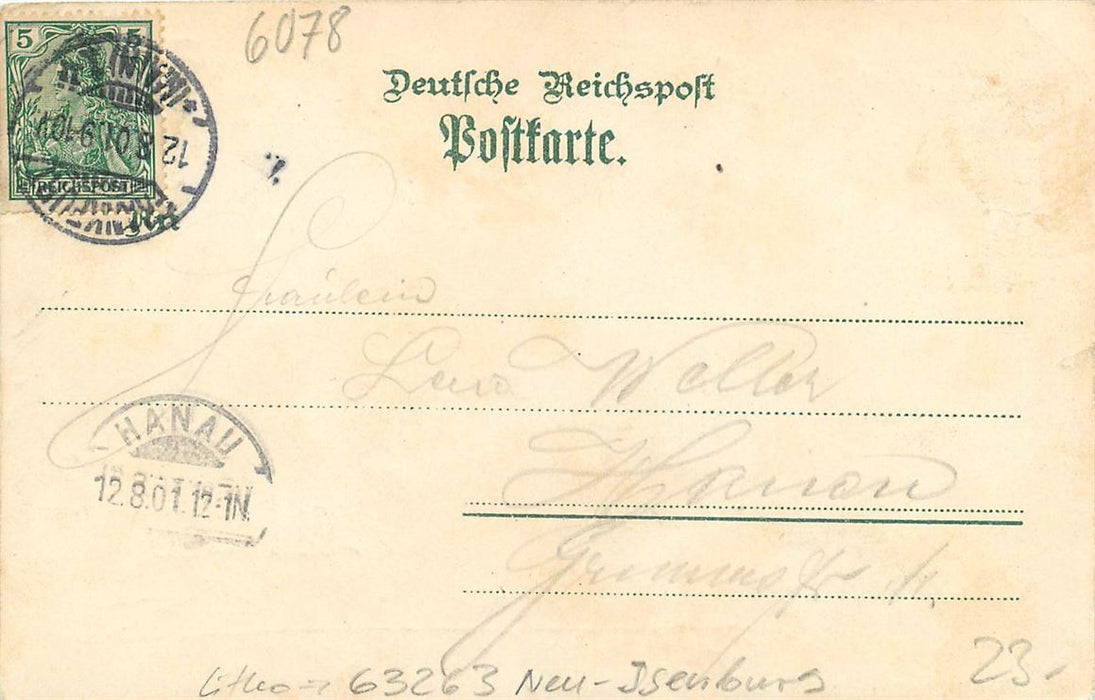 6078
5 5
REICHSPOST
12 8.01.9-10V
Deutsche Reichspost
Postkarte.
Fräulein
Weller
HANAU
12.8.01.12-1N.
Hanau
Litho 63263 Neu-Isenburg
23.-